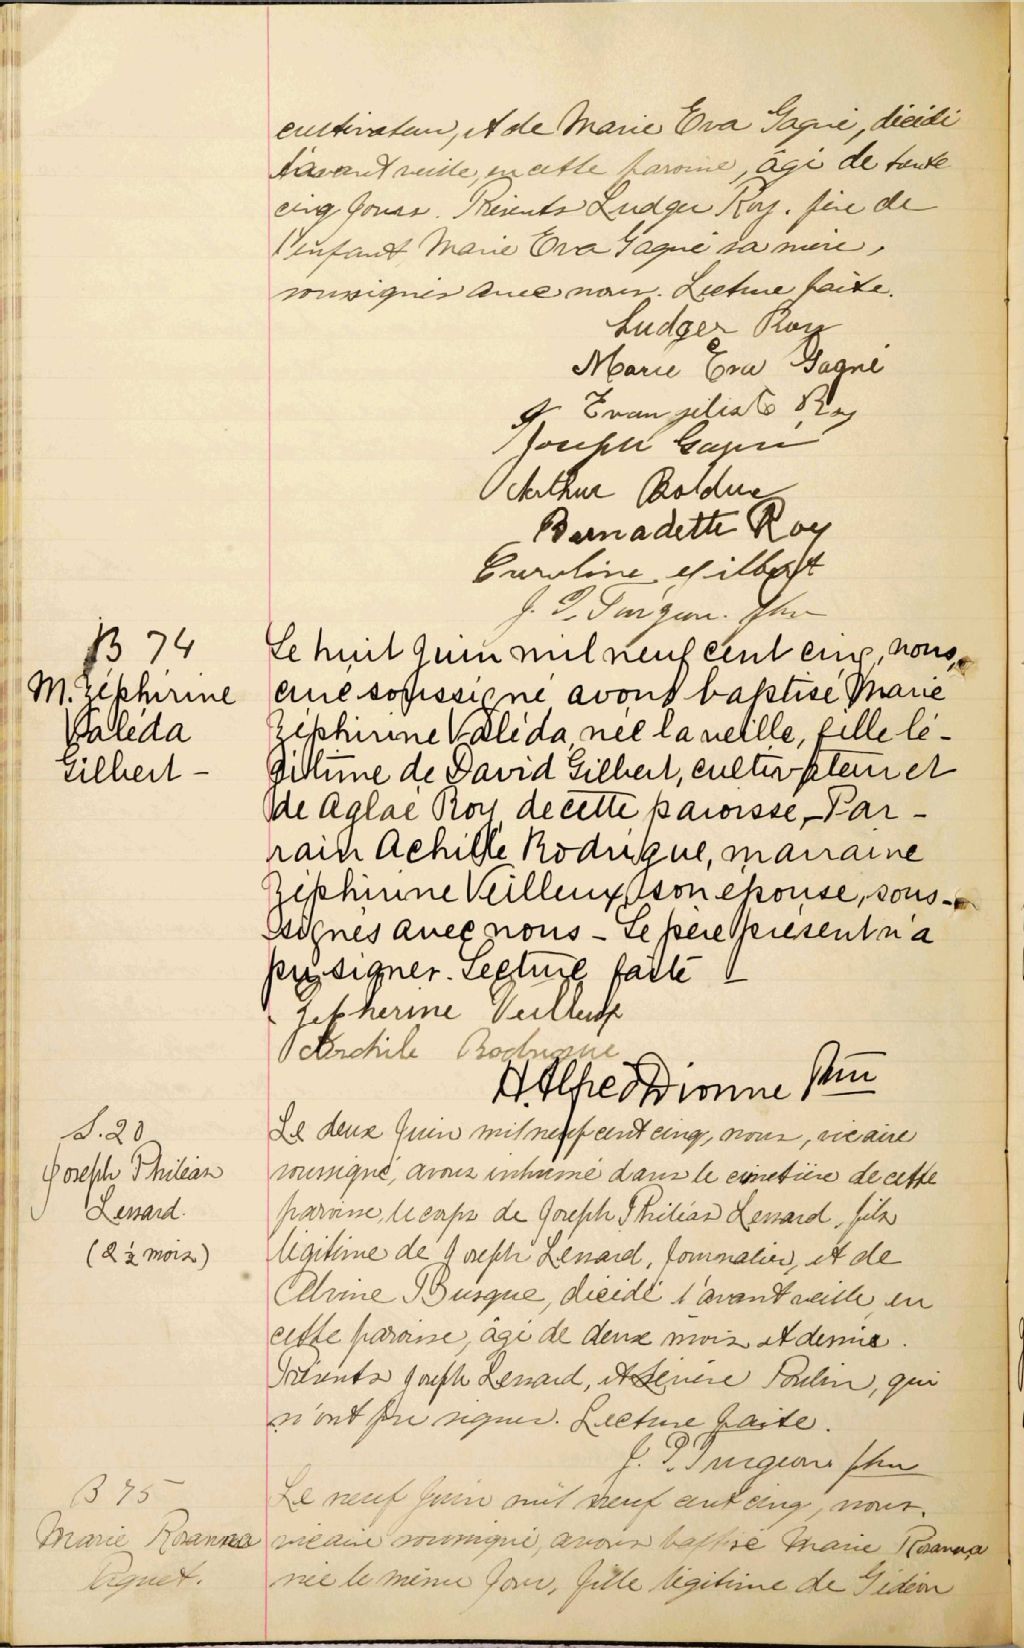 cultivateur, et de Marie Eva Gagné, décédé
l'avant veille, en cette paroisse, âgé de trente
cinq jours. Présents Ludger Roy, père de
l'enfant, Marie Eva Gagné sa mère,
soussignés avec nous. Lecture faite.
Ludger Roy
Marie Eva Gagné
Evangeliste Roy
Joseph Gagné
Arthur Bolduc
Bernadette Roy
Caroline Gilbert
J. P. Turgeon. ptre
B 74
M. Zéphirine
Valéda
Gilbert -
Le huit Juin mil neuf cent cinq, nous,
curé soussigné avons baptisé Marie
Zéphirine Valéda, née la veille, fille lé-
gitime de David Gilbert, cultivateur et
de Aglaé Roy, de cette paroisse, - Par-
rain Achille Rodrigue, marraine
Zéphirine Veilleux, son épouse, sous-
signés avec nous - Le père présent n'a
pu signer. Lecture faite -
Zepherine Veilleux
Archile Rodrigue
H. Alfred Dionne Ptre
S. 20
Joseph Philéas
Lessard.
(2 ½ mois)
Le deux Juin mil neuf cent cinq, nous, vicaire
soussigné, avons inhumé dans le cimetière de cette
paroisse, le corps de Joseph Philéas Lessard, fils
légitime de Joseph Lessard, journalier, et de
Busque, décédé l'avant veille, en
cette paroisse, âgé de deux mois et demie.
Présents Joseph Lessard, et Sévère Poulin, qui
n'ont pu signer. Lecture faite.
J. P. Turgeon ptre
B 75
Marie Rosanna
Paquet.
Le neuf Juin mil neuf cent cinq, nous,
vicaire soussigné, avons baptisé Marie Rosanna
née le même jour, fille légitime de Gédéon